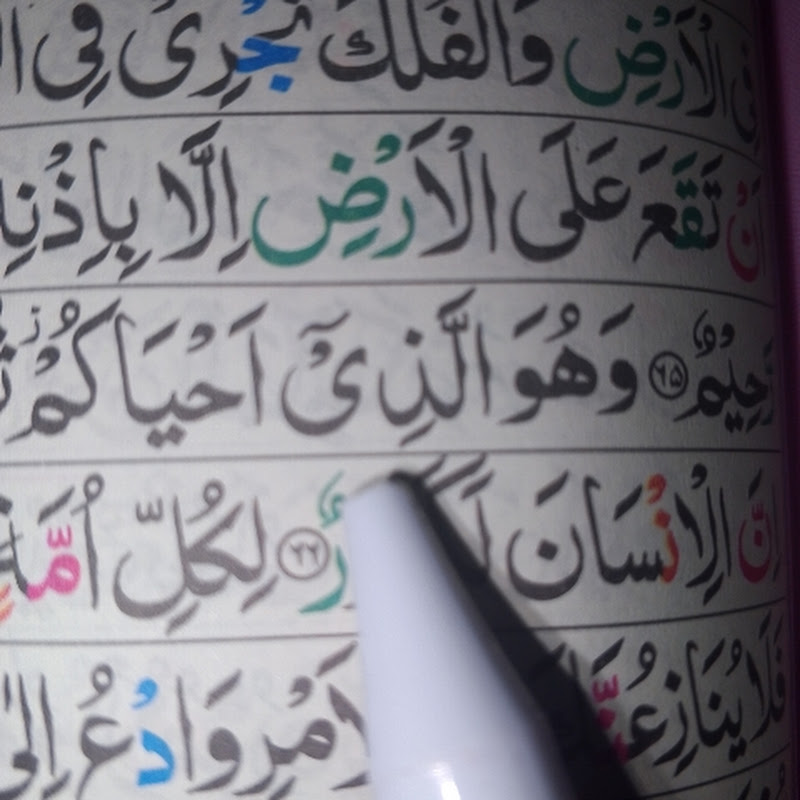 الْاَرْضِ وَالْفُلْكَ تَجْرِیْ فِی
اَنْ تَقَعَ عَلَی الْاَرْضِ اِلَّا بِاِذْنِهٖ
رَّحِیْمٌ ﴿۶۵﴾ وَهُوَ الَّذِیْۤ اَحْیَاكُمْ
اِنَّ الْاِنْسَانَ ﴿۶۶﴾ لِكُلِّ اُمَّةٍ
فَلَا یُنَازِعُنَّكَ الْاَمْرِ وَادْعُ اِلٰی